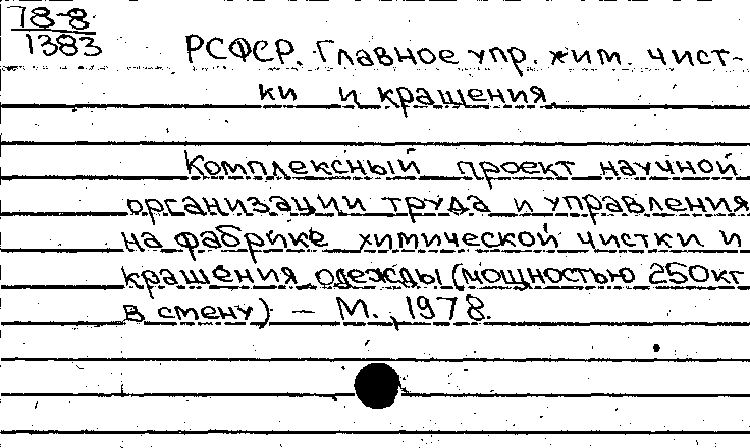 78-8
1383
РСФСР. Главное упр. хим. чист-
ки и крашения.
Комплексный проект научной
организации труда и управления
на фабрике химической чистки и
крашения одежды (мощностью 250кг
в смену) – М., 1978.